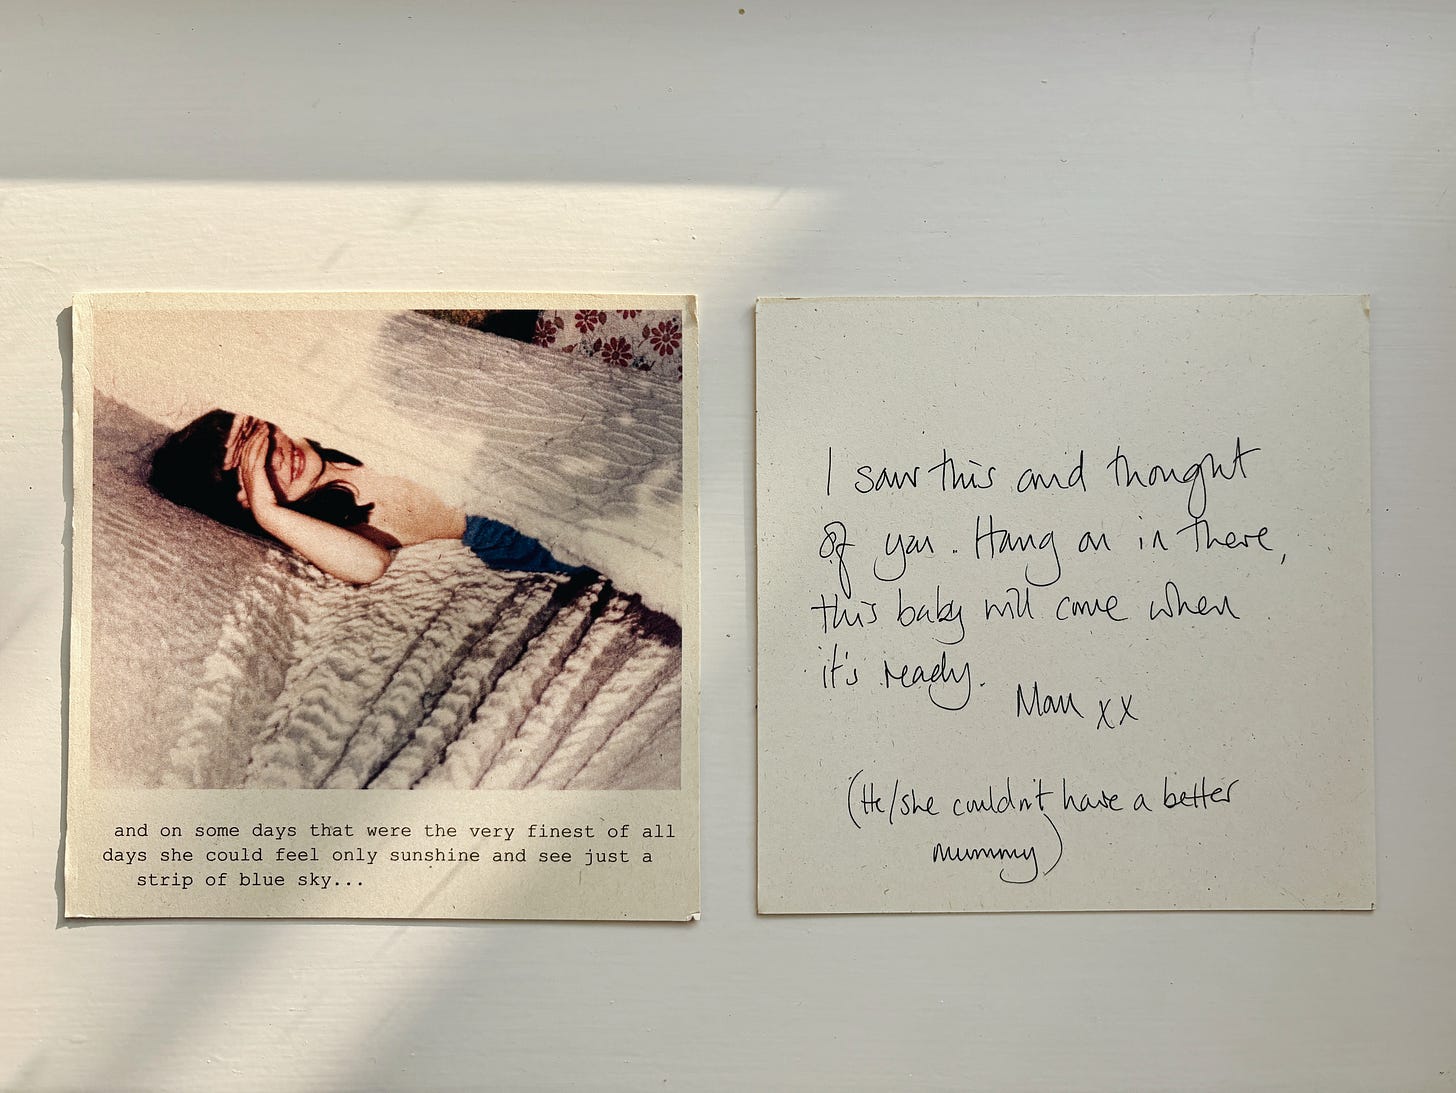 and on some days that were the very finest of all
days she could feel only sunshine and see just a
strip of blue sky...
I saw this and thought
of you. Hang on in there,
this baby will come when
it's ready.
xx
(He/she couldn't have a better
mummy)